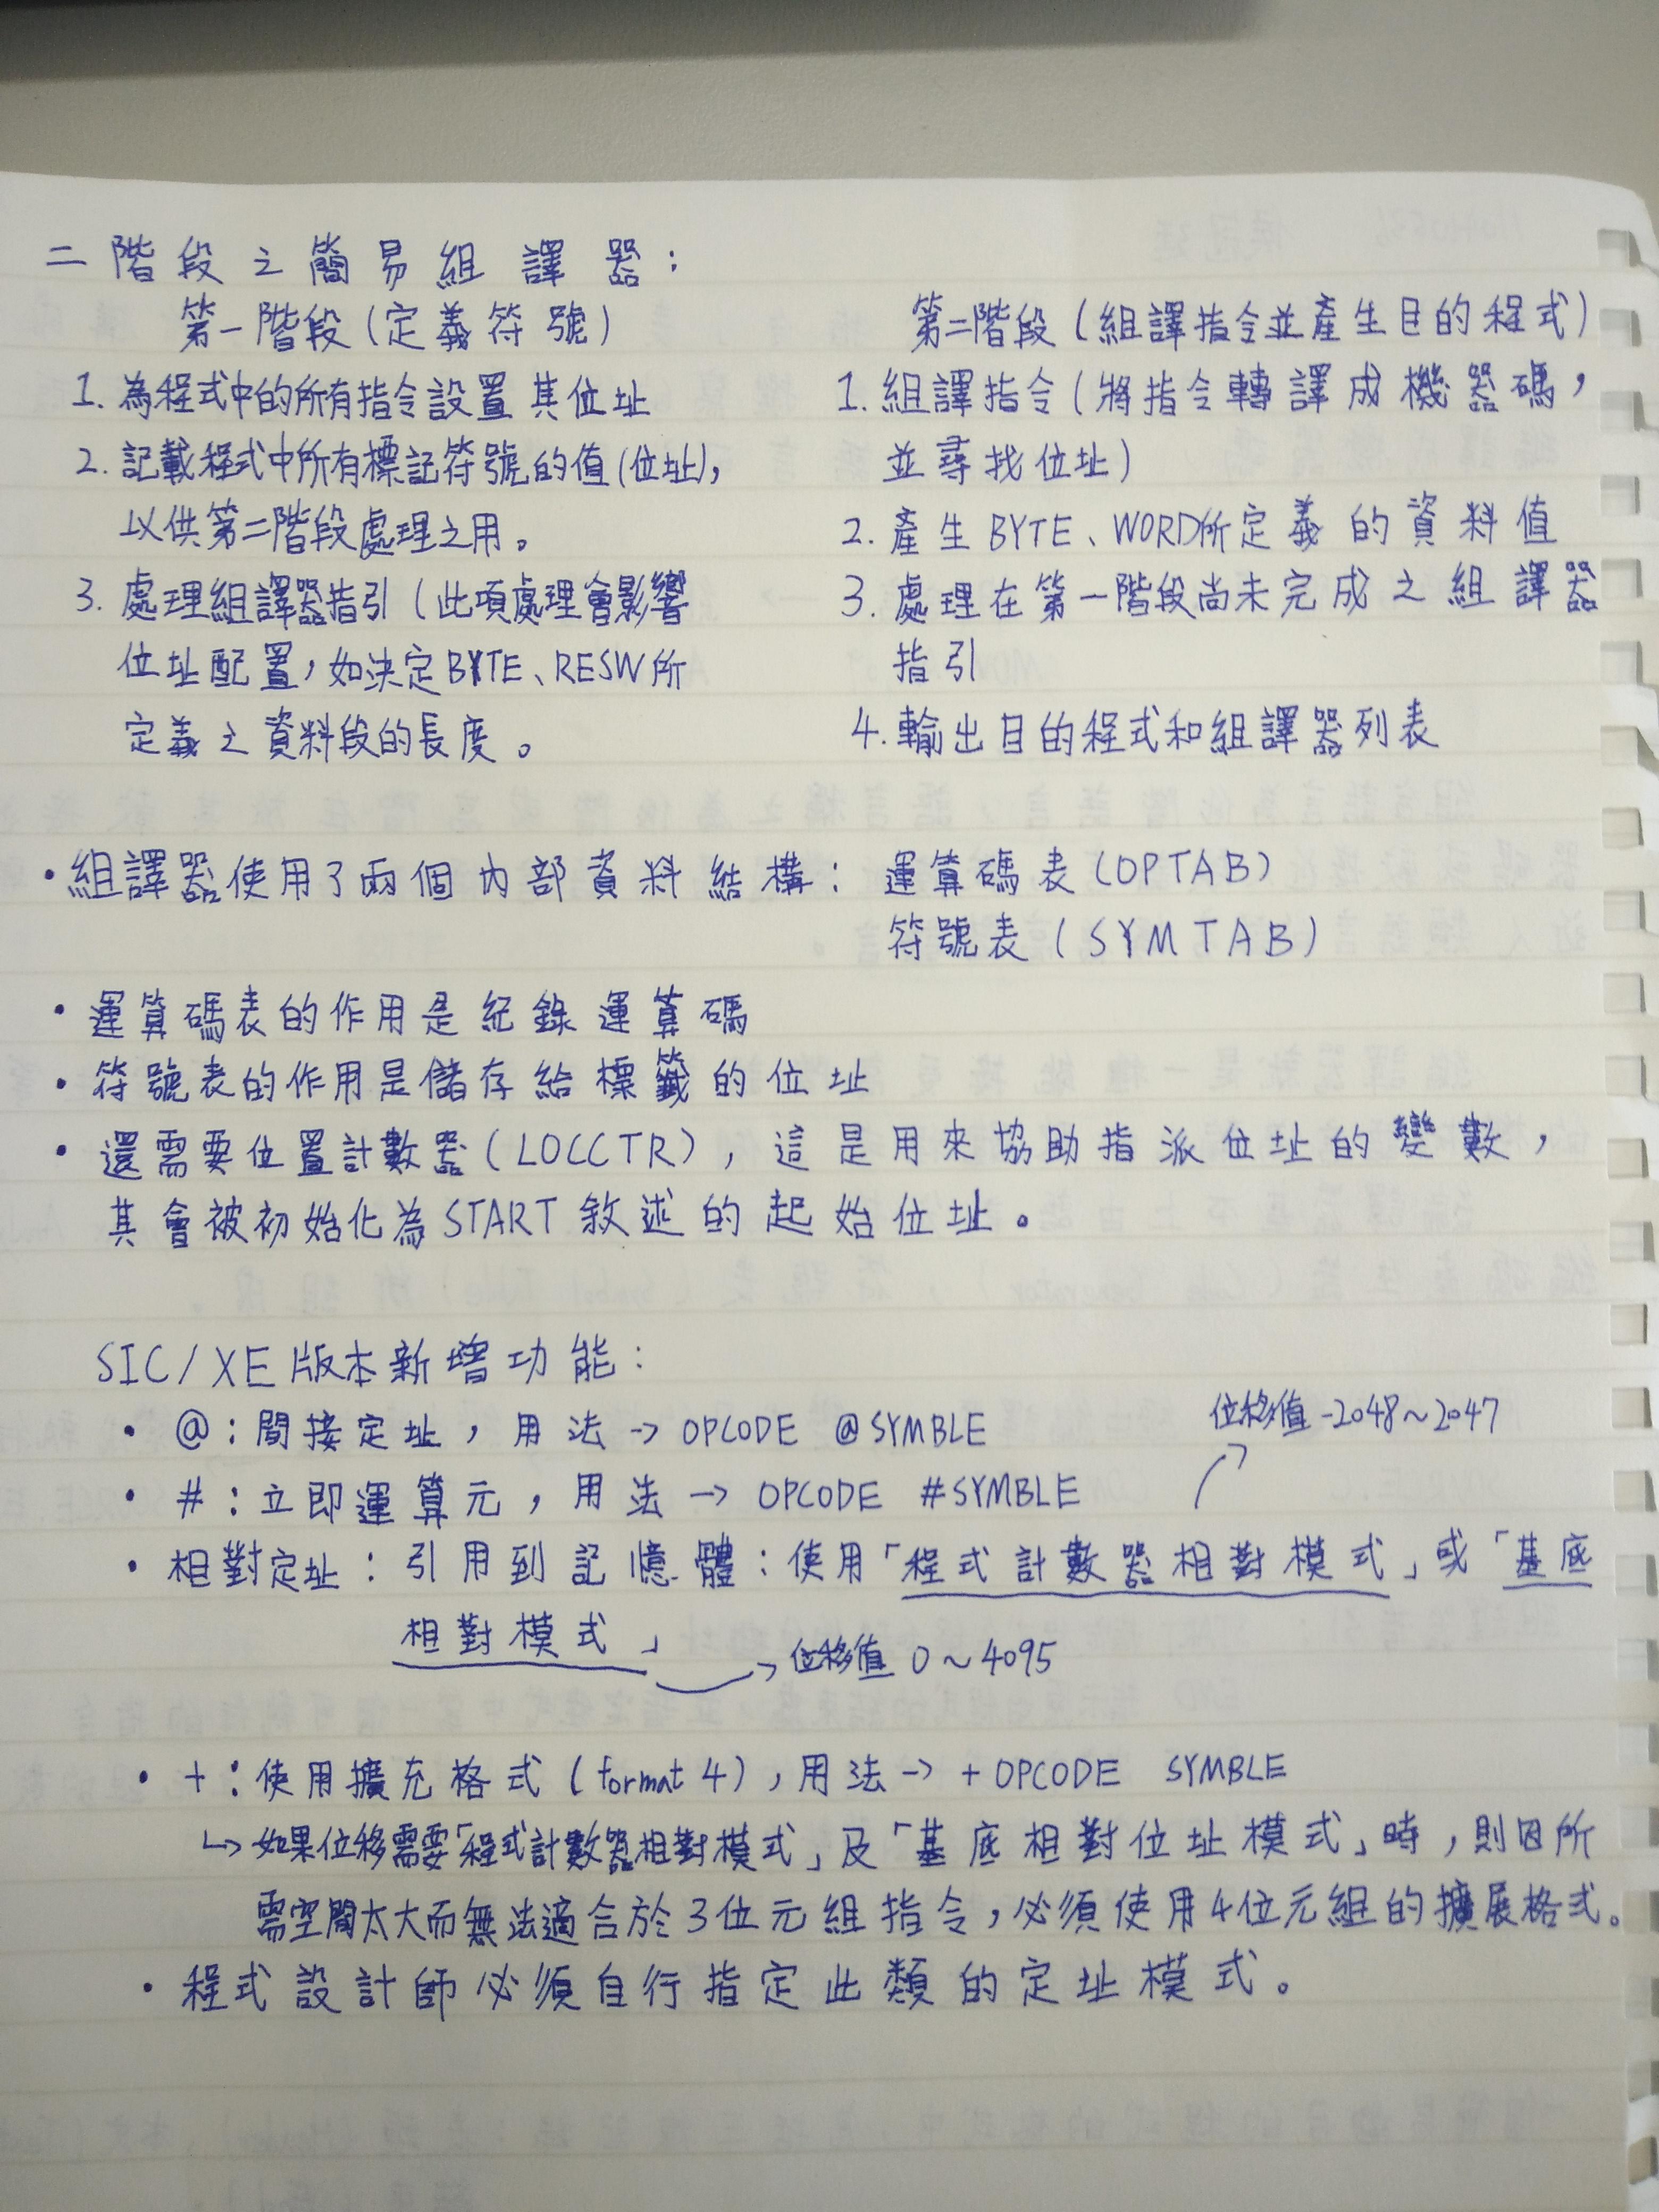 二階段之簡易組譯器：
第一階段(定義符號)
1. 為程式中的所有指令設置其位址
2. 記載程式中所有標記符號的值(位址)，
以供第二階段處理之用。
3. 處理組譯器指引(此項處理會影響
位址配置，如決定BYTE、RESW所
定義之資料段的長度。
第二階段(組譯指令並產生目的程式)
1. 組譯指令(將指令轉譯成機器碼，
並尋找位址)
2. 產生BYTE、WORD所定義的資料值
3. 處理在第一階段尚未完成之組譯器
指引
4. 輸出目的程式和組譯器列表
・組譯器使用了兩個內部資料結構：運算碼表(OPTAB)
符號表(SYMTAB)
・運算碼表的作用是紀錄運算碼
・符號表的作用是儲存給標籤的位址
・還需要位置計數器(LOCCTR)，這是用來協助指派位址的變數，
其會被初始化為START敘述的起始位址。
SIC/XE版本新增功能：
・@：間接定址，用法→OPCODE @SYMBLE
位移值-2048~2047
・#：立即運算元，用法→OPCODE #SYMBLE
・相對定址：引用到記憶體：使用「程式計數器相對模式」或「基底
相對模式」
→位移值 0~4095
・+：使用擴充格式(format 4)，用法→+OPCODE SYMBLE
↳如果位移需要「程式計數器相對模式」及「基底相對位址模式」時，則因所
需空間太大而無法適合於3位元組指令，必須使用4位元組的擴展格式。
・程式設計師必須自行指定此類的定址模式。